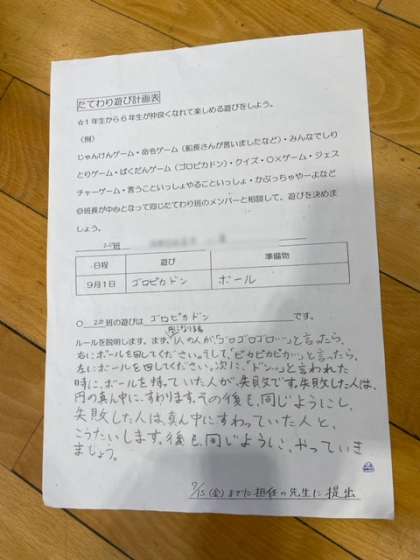 たてわり遊び計画表
☆１年生から６年生が仲良くなれて楽しめる遊びをしよう。
（例）
じゃんけんゲーム・命令ゲーム（船長さんが言いましたなど）・みんなでしり
とりゲーム・ばくだんゲーム（ゴロピカドン）・クイズ・〇×ゲーム・ジェス
チャーゲーム・言うこといっしょやることいっしょ・かぶっちゃやーよなど
◎班長が中心となって同じたてわり班のメンバーと相談して、遊びを決めま
しょう。
班
日程 遊び 準備物
９月１日 ゴロピカドン ボール
班の遊びは ゴロピカドン です。
円になり座る
ルールを説明します。まず、1人の人が「ゴロゴロゴロ…」と言ったら、
右にボールを回してください。そして、「ピカピカピカ…」と言ったら、
左にボールを回してください。次に、「ドン…」と言われた
時に、ボールを持っていた人が、失敗です。失敗した人は、
円の真ん中に、すわります。その後も、同じようにし、
失敗した人は、真ん中にすわっていた人と、
こうたいします。後も、同じように、やっていき
ましょう。
7/15(金)までに担任の先生に提出